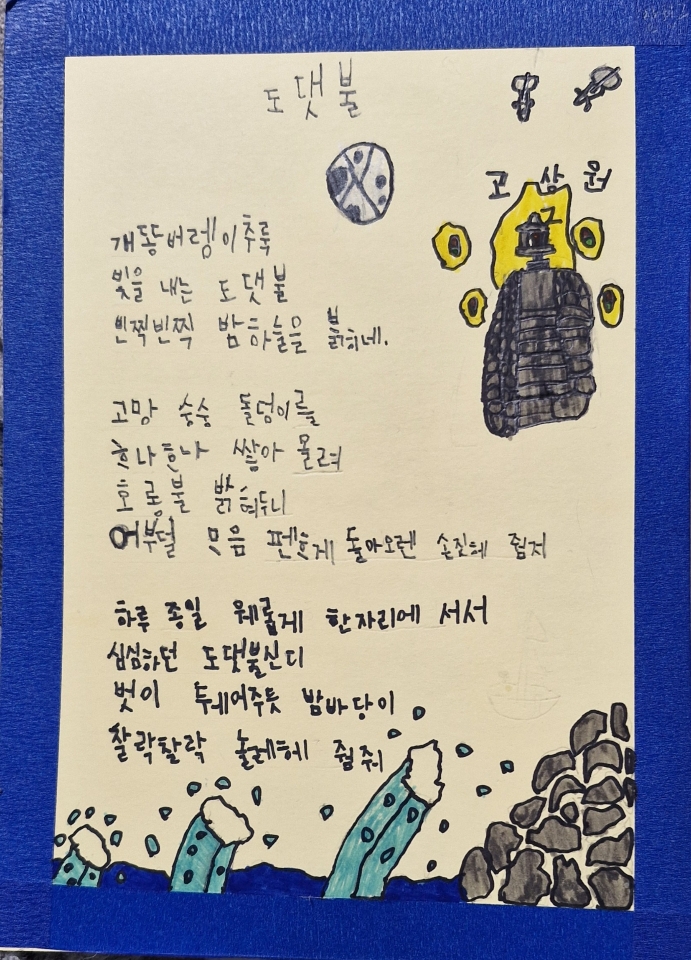 도댓불
고상원
개똥버렝이추룩
빛을 내는 도댓불
빈찍빈찍 밤하늘을 붉히네.
고망 숭숭 돌덩이를
ᄒᆞ나ᄒᆞ나 쌓아 올려
호롱불 밝혀두니
어부덜 ᄆᆞ음 펜ᄒᆞ게 돌아오렌 손짓헤 줨저
하루 종일 웨롭게 한자리에 서서
심심하던 도댓불신디
벗이 뒈어주듯 밤바당이
찰락찰락 놀레헤 줨줘